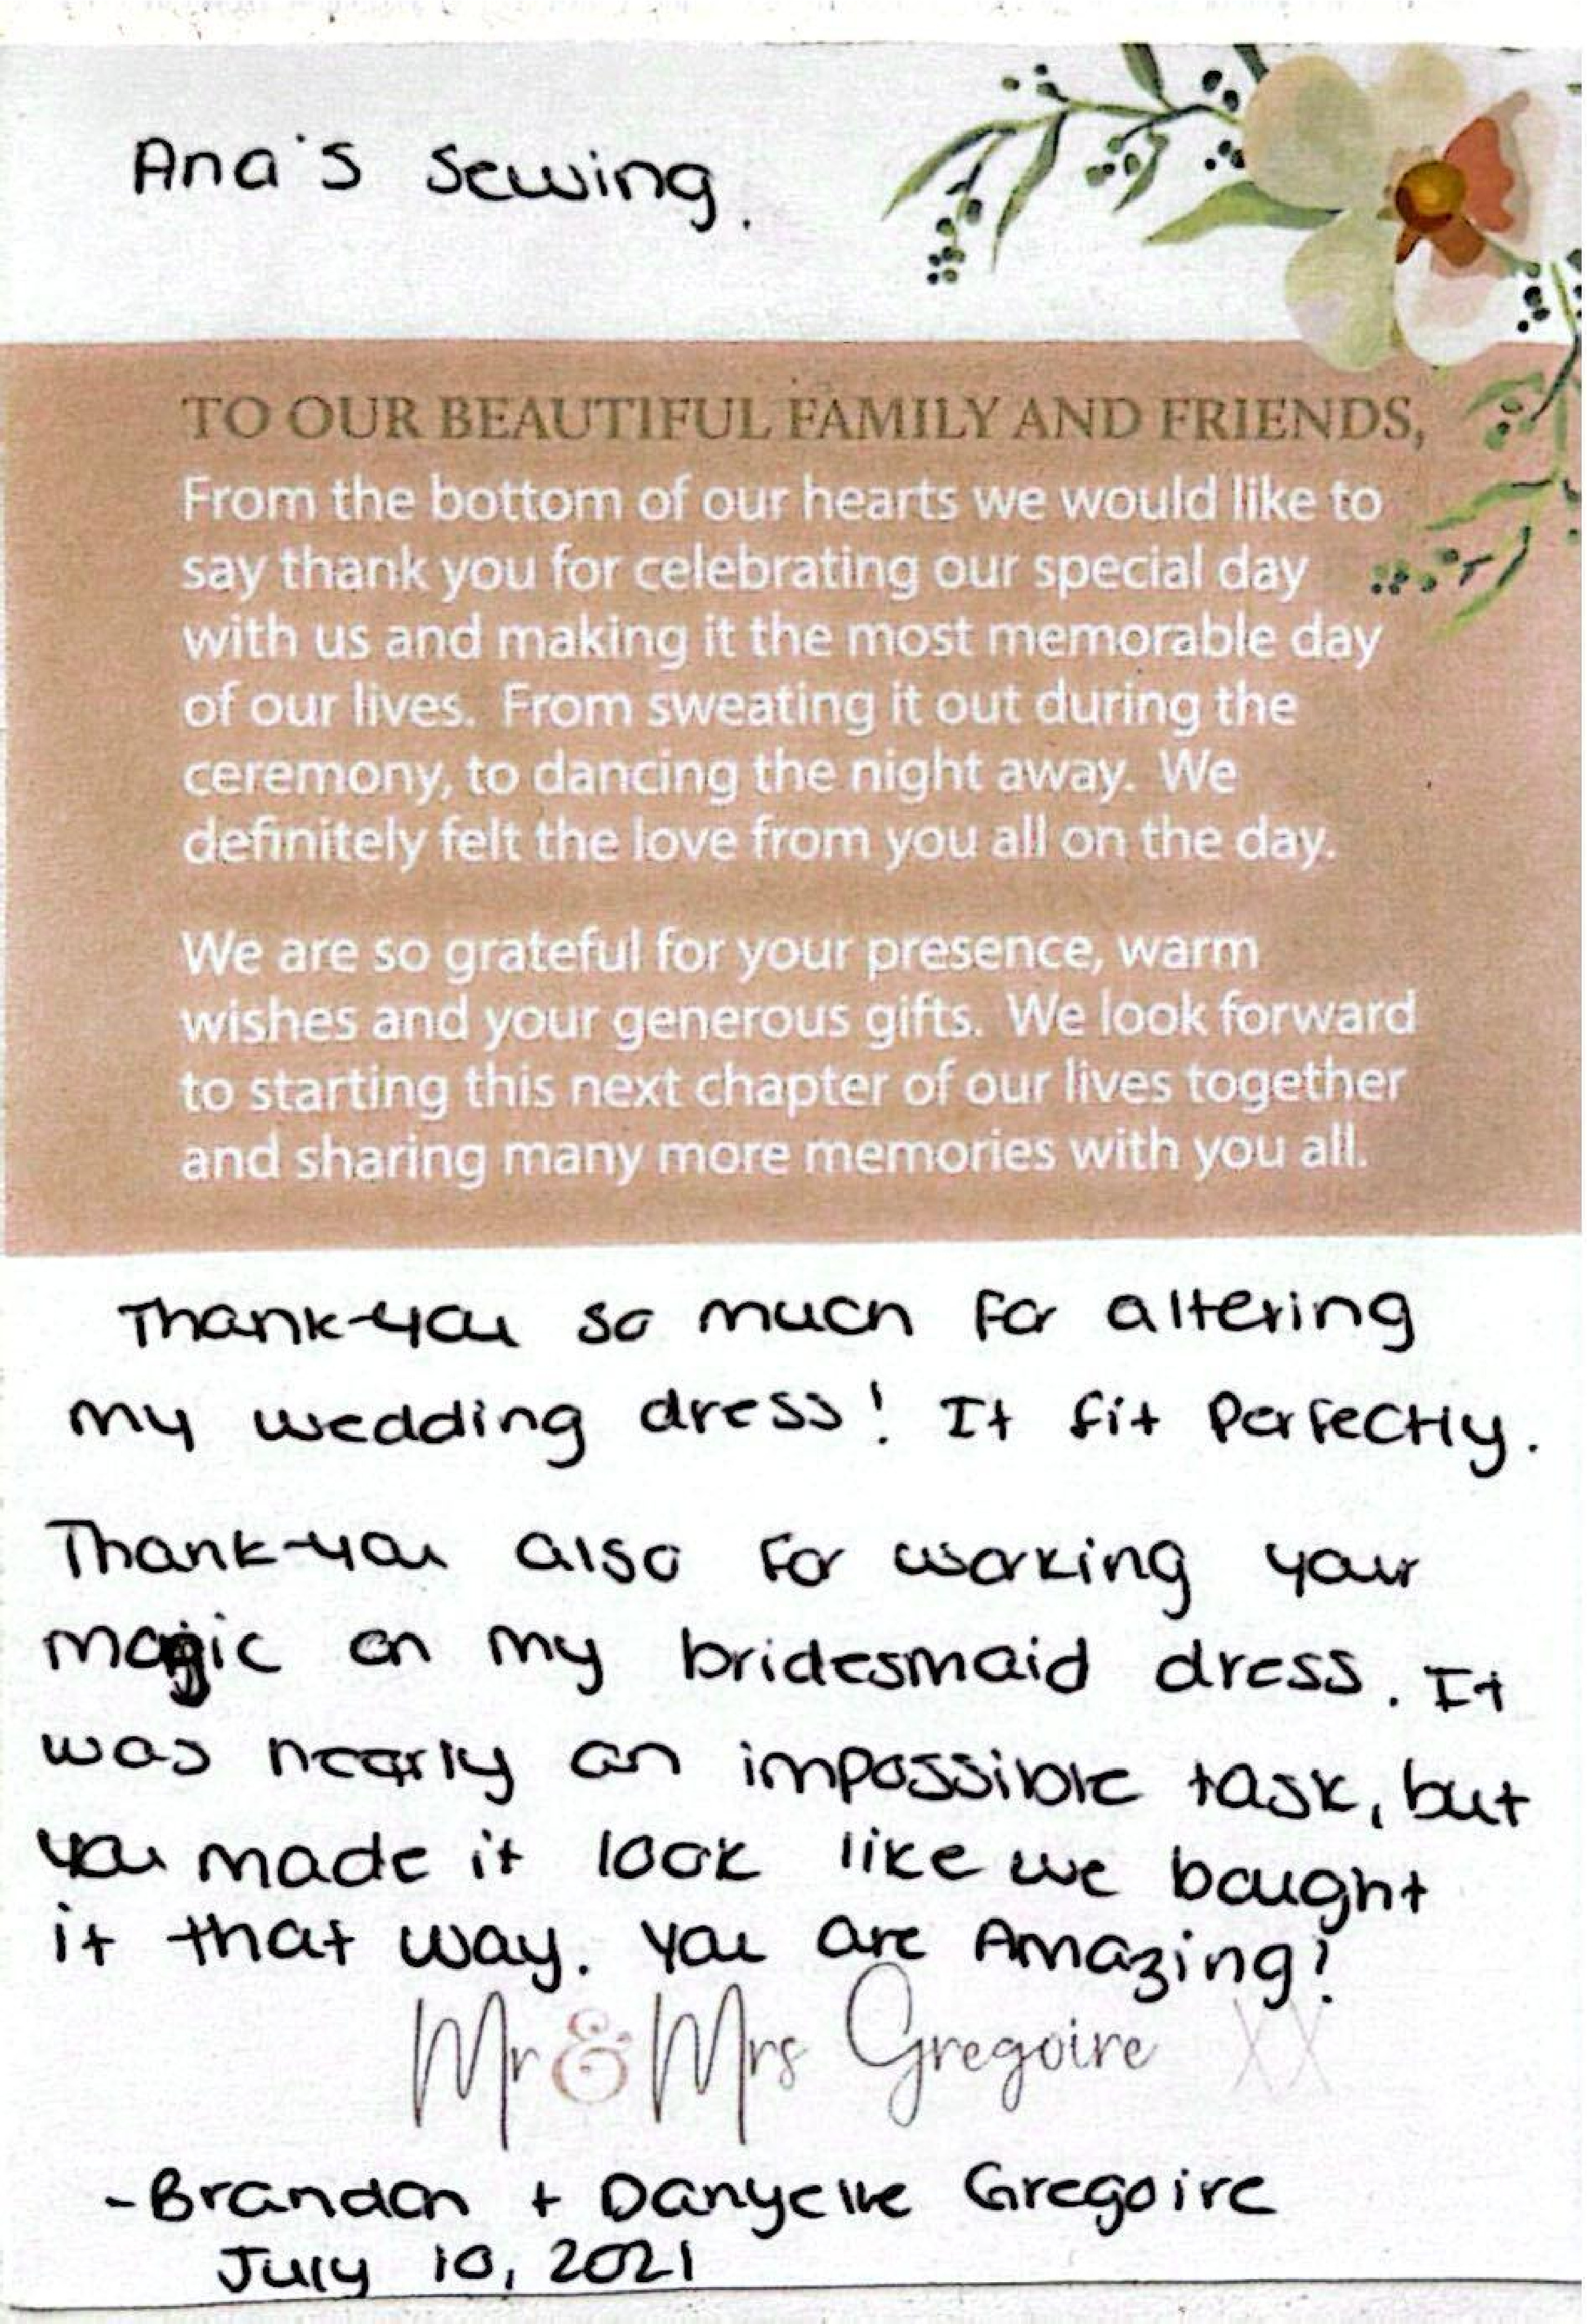 Ana's Sewing.
TO OUR BEAUTIFUL FAMILY AND FRIENDS,
From the bottom of our hearts we would like to
say thank you for celebrating our special day
with us and making it the most memorable day
of our lives. From sweating it out during the
ceremony, to dancing the night away. We
definitely felt the love from you all on the day.
We are so grateful for your presence, warm
wishes and your generous gifts. We look forward
to starting this next chapter of our lives together
and sharing many more memories with you all.
Thank-you so much for altering
my wedding dress! It fit Perfectly.
Thank-you also for working your
magic on my bridesmaid dress. It
was nearly an impossible task, but
you made it look like we bought
it that way. You are Amazing!
Mr & Mrs Gregoire XX
-Brandon + Danyelle Gregoire
July 10, 2021